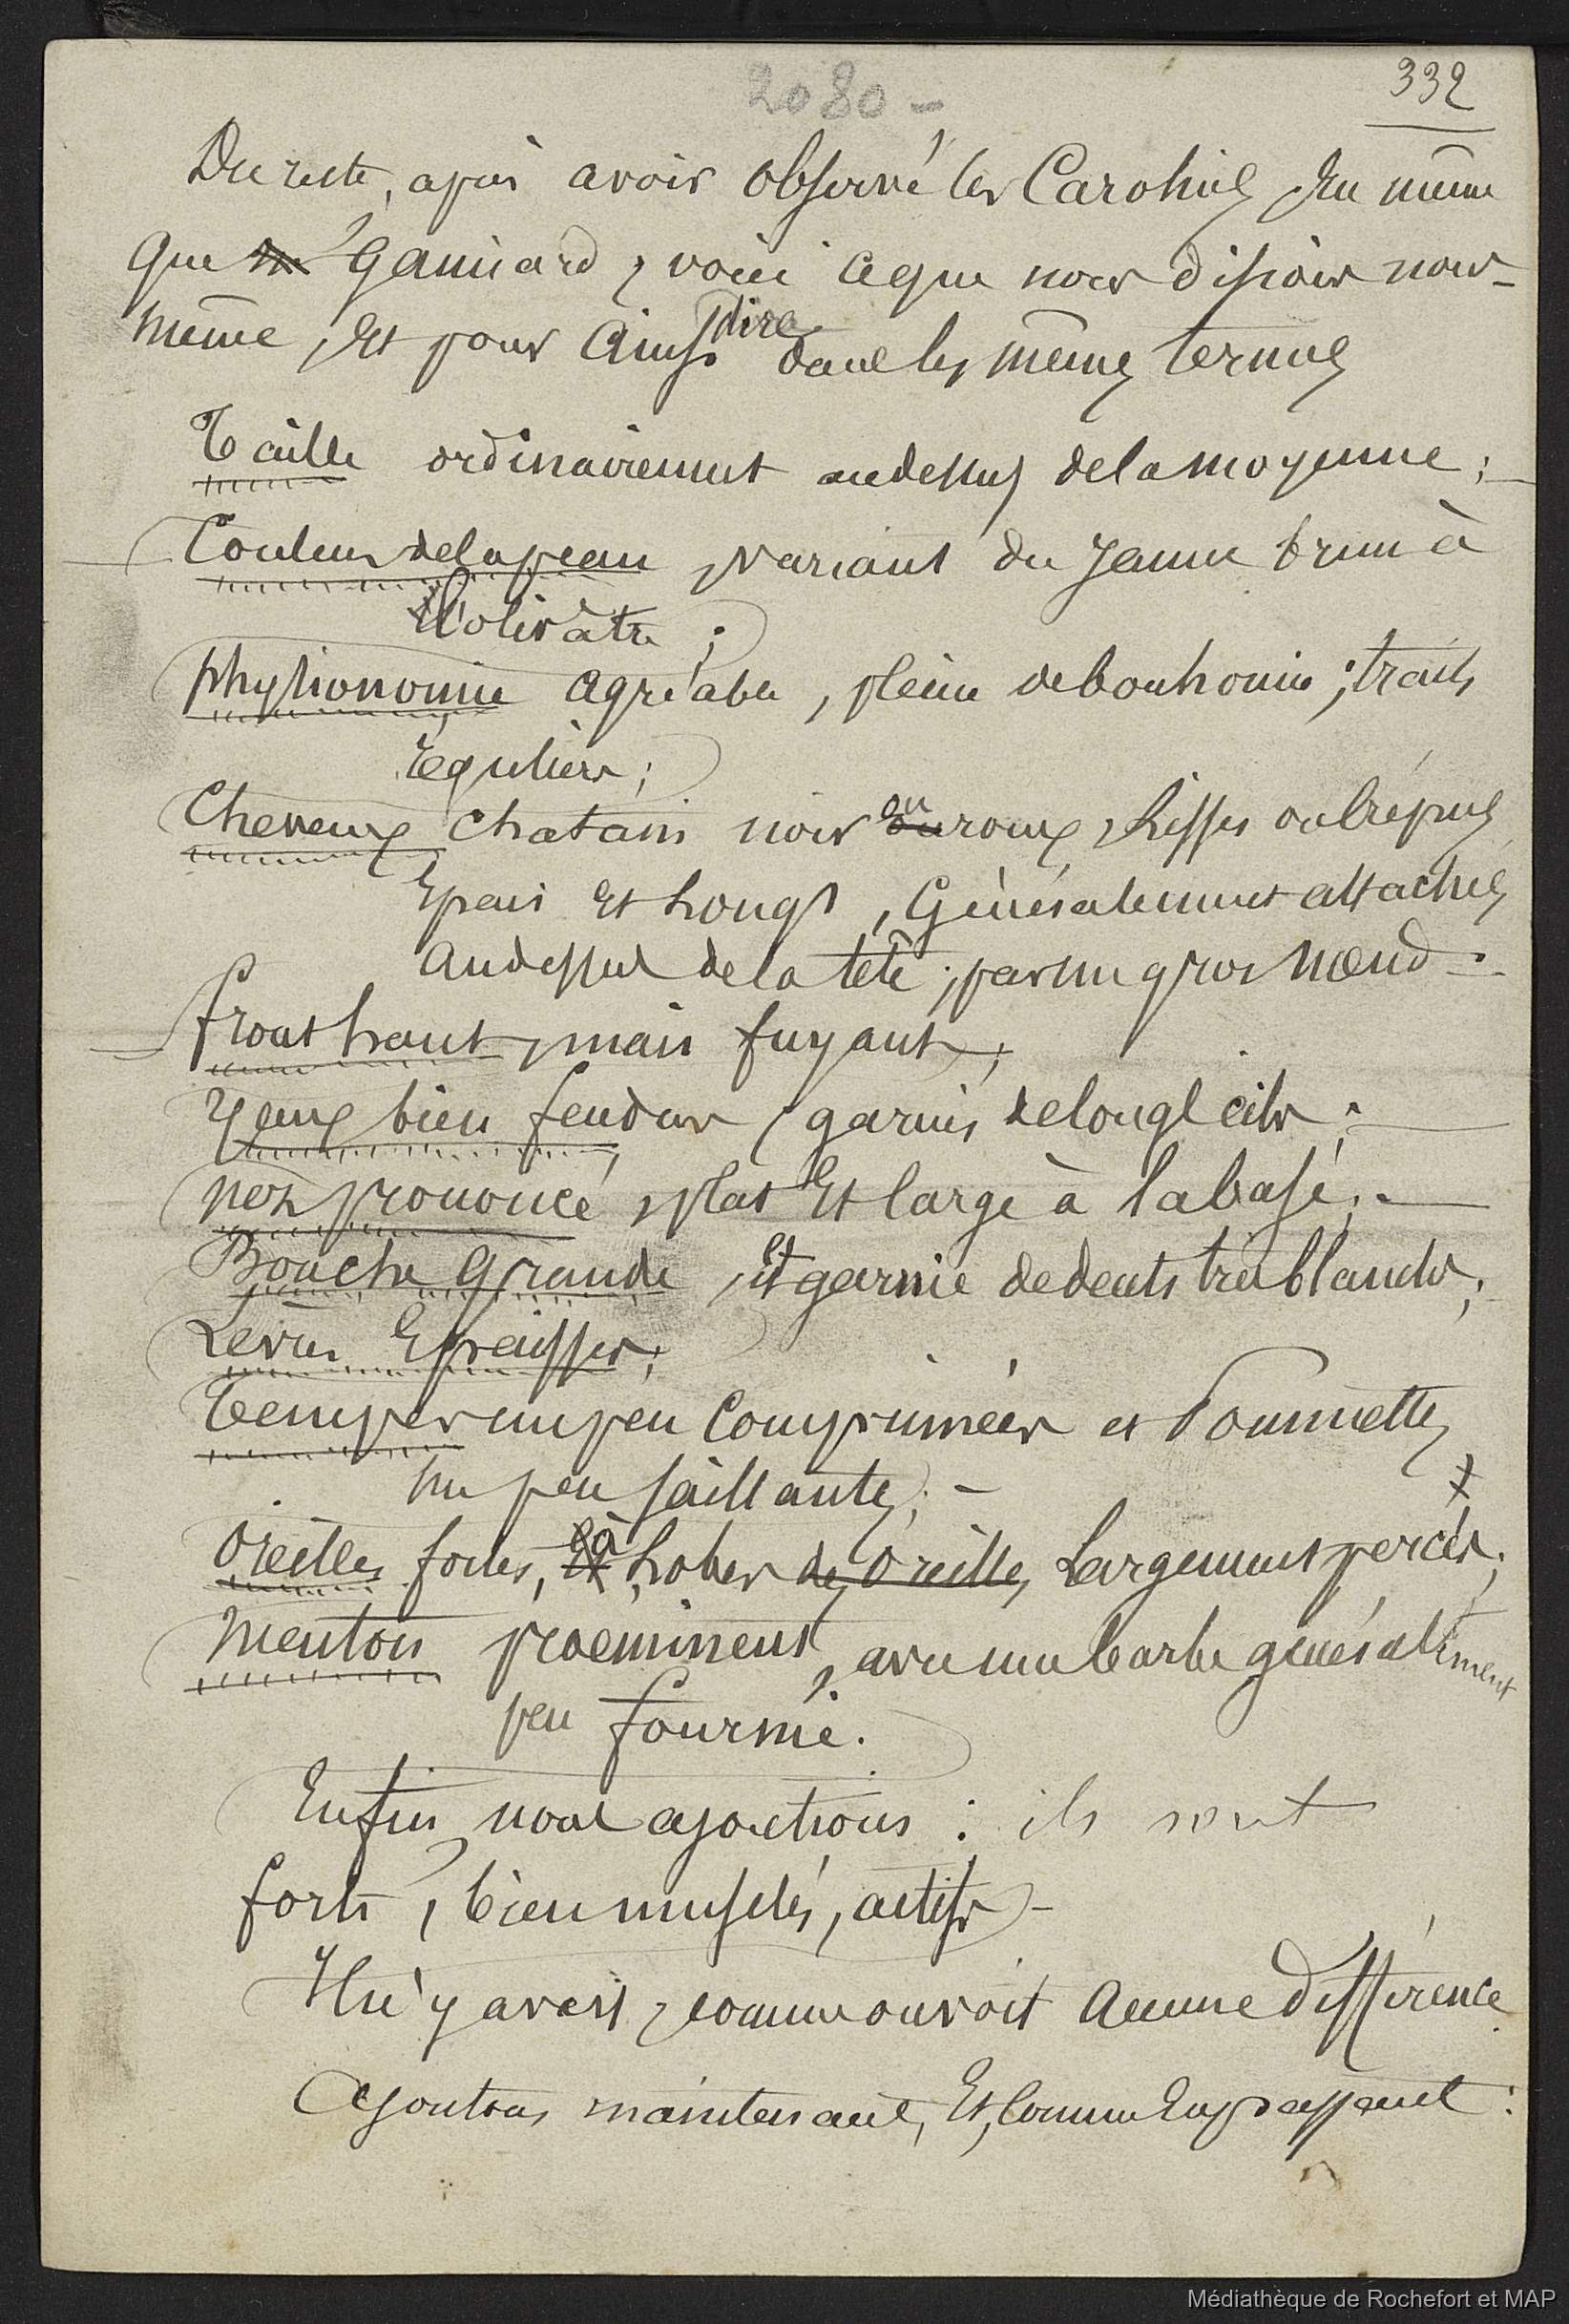 2080 -
332
Du reste, après avoir observé les Carolins, en même
que Gaimard, voici ce que nous disions nous-
même, et pour ainsi dire dans les mêmes termes
Taille ordinairement au dessus de la moyenne ;
Couleur de la peau, variant du jaune brun à
l'olivâtre ;
physionomie agréable, pleine de bonhomie ; traits
réguliers ;
Cheveux chatain noir ou roux, lisses ou crépus
Epais et longs, Généralement attachés
au dessus de la tête, par un gros noeud .-
front haut, mais fuyant ;
yeux bien fendus, garnis de longs cils ;
nez prononcé, plat et large à la base ; -
Bouche grande, et garnie de dents très blanches ;
Levres Epaisses ;
Tempes un peu comprimées et Pommettes
un peu saillantes ; -
Oreilles fortes, à Lobes des Oreilles Largement percés ;
Menton proeminent, avec une barbe généralement
peu fournie.
Enfin nous ajoutions : ils sont
forts, bien musclés, actifs -
Il n'y avait, comme on voit aucune différence
Ajoutons maintenant, Et, comme En passant :
Médiathèque de Rochefort et MAP